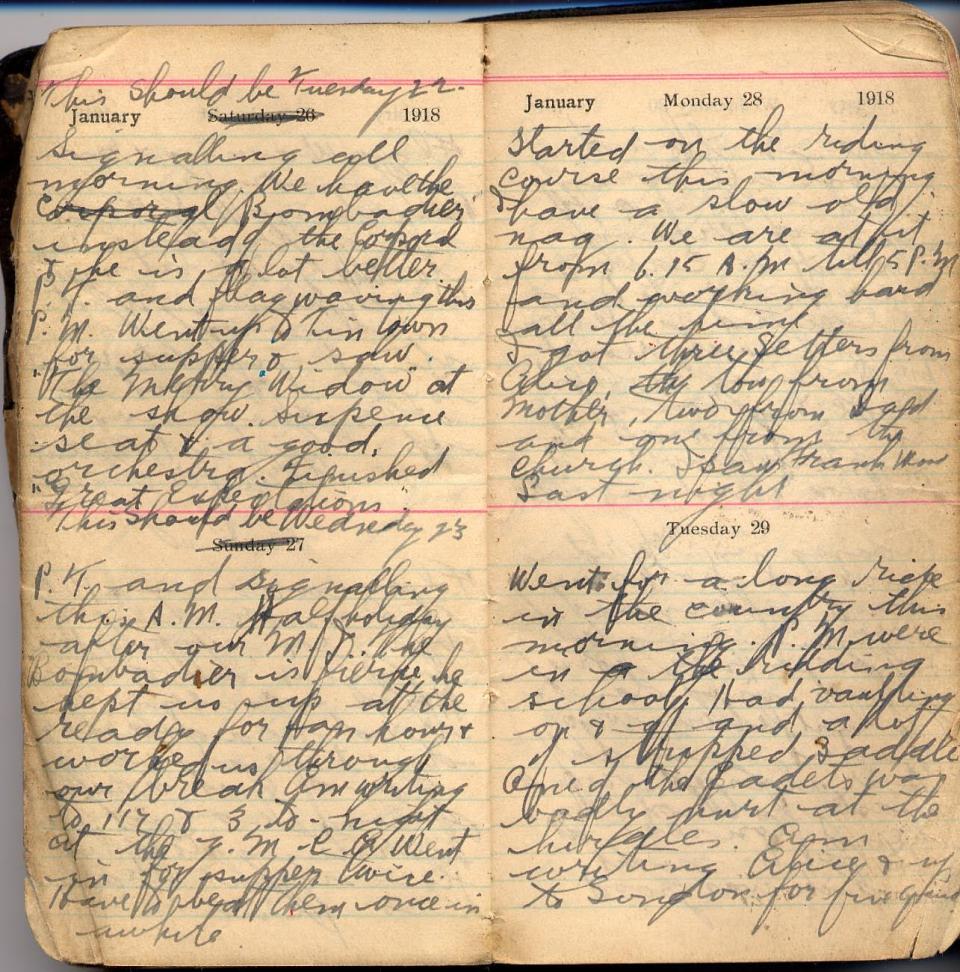 This should be Tuesday 22.
January Saturday 26 1918
Signalling all
morning. We have the
Corporal Bombadier
instead of the Corporal
& he is a lot better.
P.T. and flag waving this
P.M. Went up to town
for supper & saw
"The Merry Widow" at
the show. Sixpence
seat & a good
orchestra. Finished
"Great Expectations"
This should be Wednesday 23
Sunday 27
P.T. and signalling
this A.M. Half holiday
after our The
Bombadier is fierce he
kept us up at the
reader for hours &
worked us through
our break Am writing
to 3 to-night
at the Y.M.C.A. Went
in for supper twice.
Have to beat them once in
awhile
January Monday 28 1918
Started on the riding
course this morning
I have a slow old
nag. We are at it
from 6.15 A.M till 5 P.M
and working hard
all the time
I got three letters from
Alice, two from
Mother, two from Dad
and one from the
Church. I saw Frank
Last night
Tuesday 29
Went for a long ride
in the country this
morning. P.M. were
in the riding
school. Had vaulting
on & off and a lot
of stripped saddle
One of the Cadets was
badly hurt at the
hurdles. Am
writing Alice & up
to London for